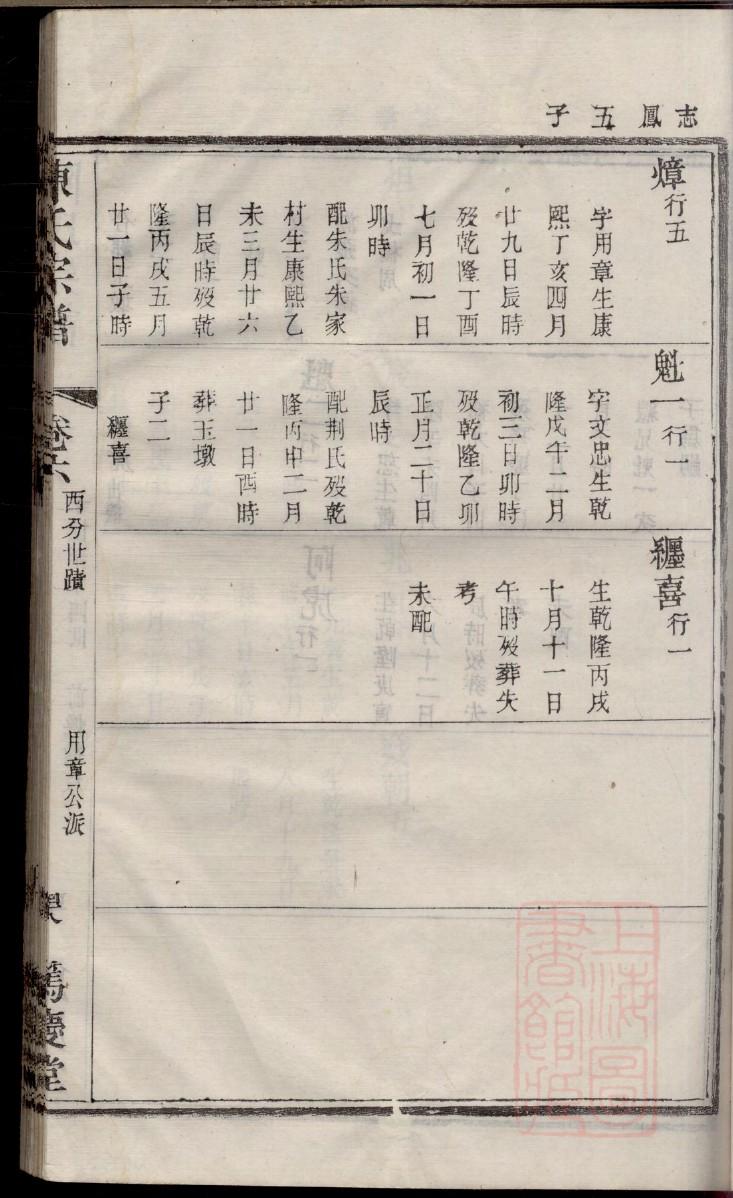 志鳳五子
煒行五
字用章生康
熙丁亥四月
廿九日辰時
歿乾隆丁酉
七月初一日
卯時
配朱氏朱家
村生康熙乙
未三月廿六
日辰時歿乾
隆丙戌五月
廿一日子時
魁一行一
字文忠生乾
隆戊午二月
初三日卯時
歿乾隆乙卯
正月二十日
辰時
配荆氏歿乾
隆丙申二月
廿一日酉時
葬玉墩
子二
纒喜
纒喜行一
生乾隆丙戌
十月十一日
午時歿葬失
考
未配
陳氏宗譜
卷六
西分世蹟
用章公派
篤慶堂
上海圖書館藏